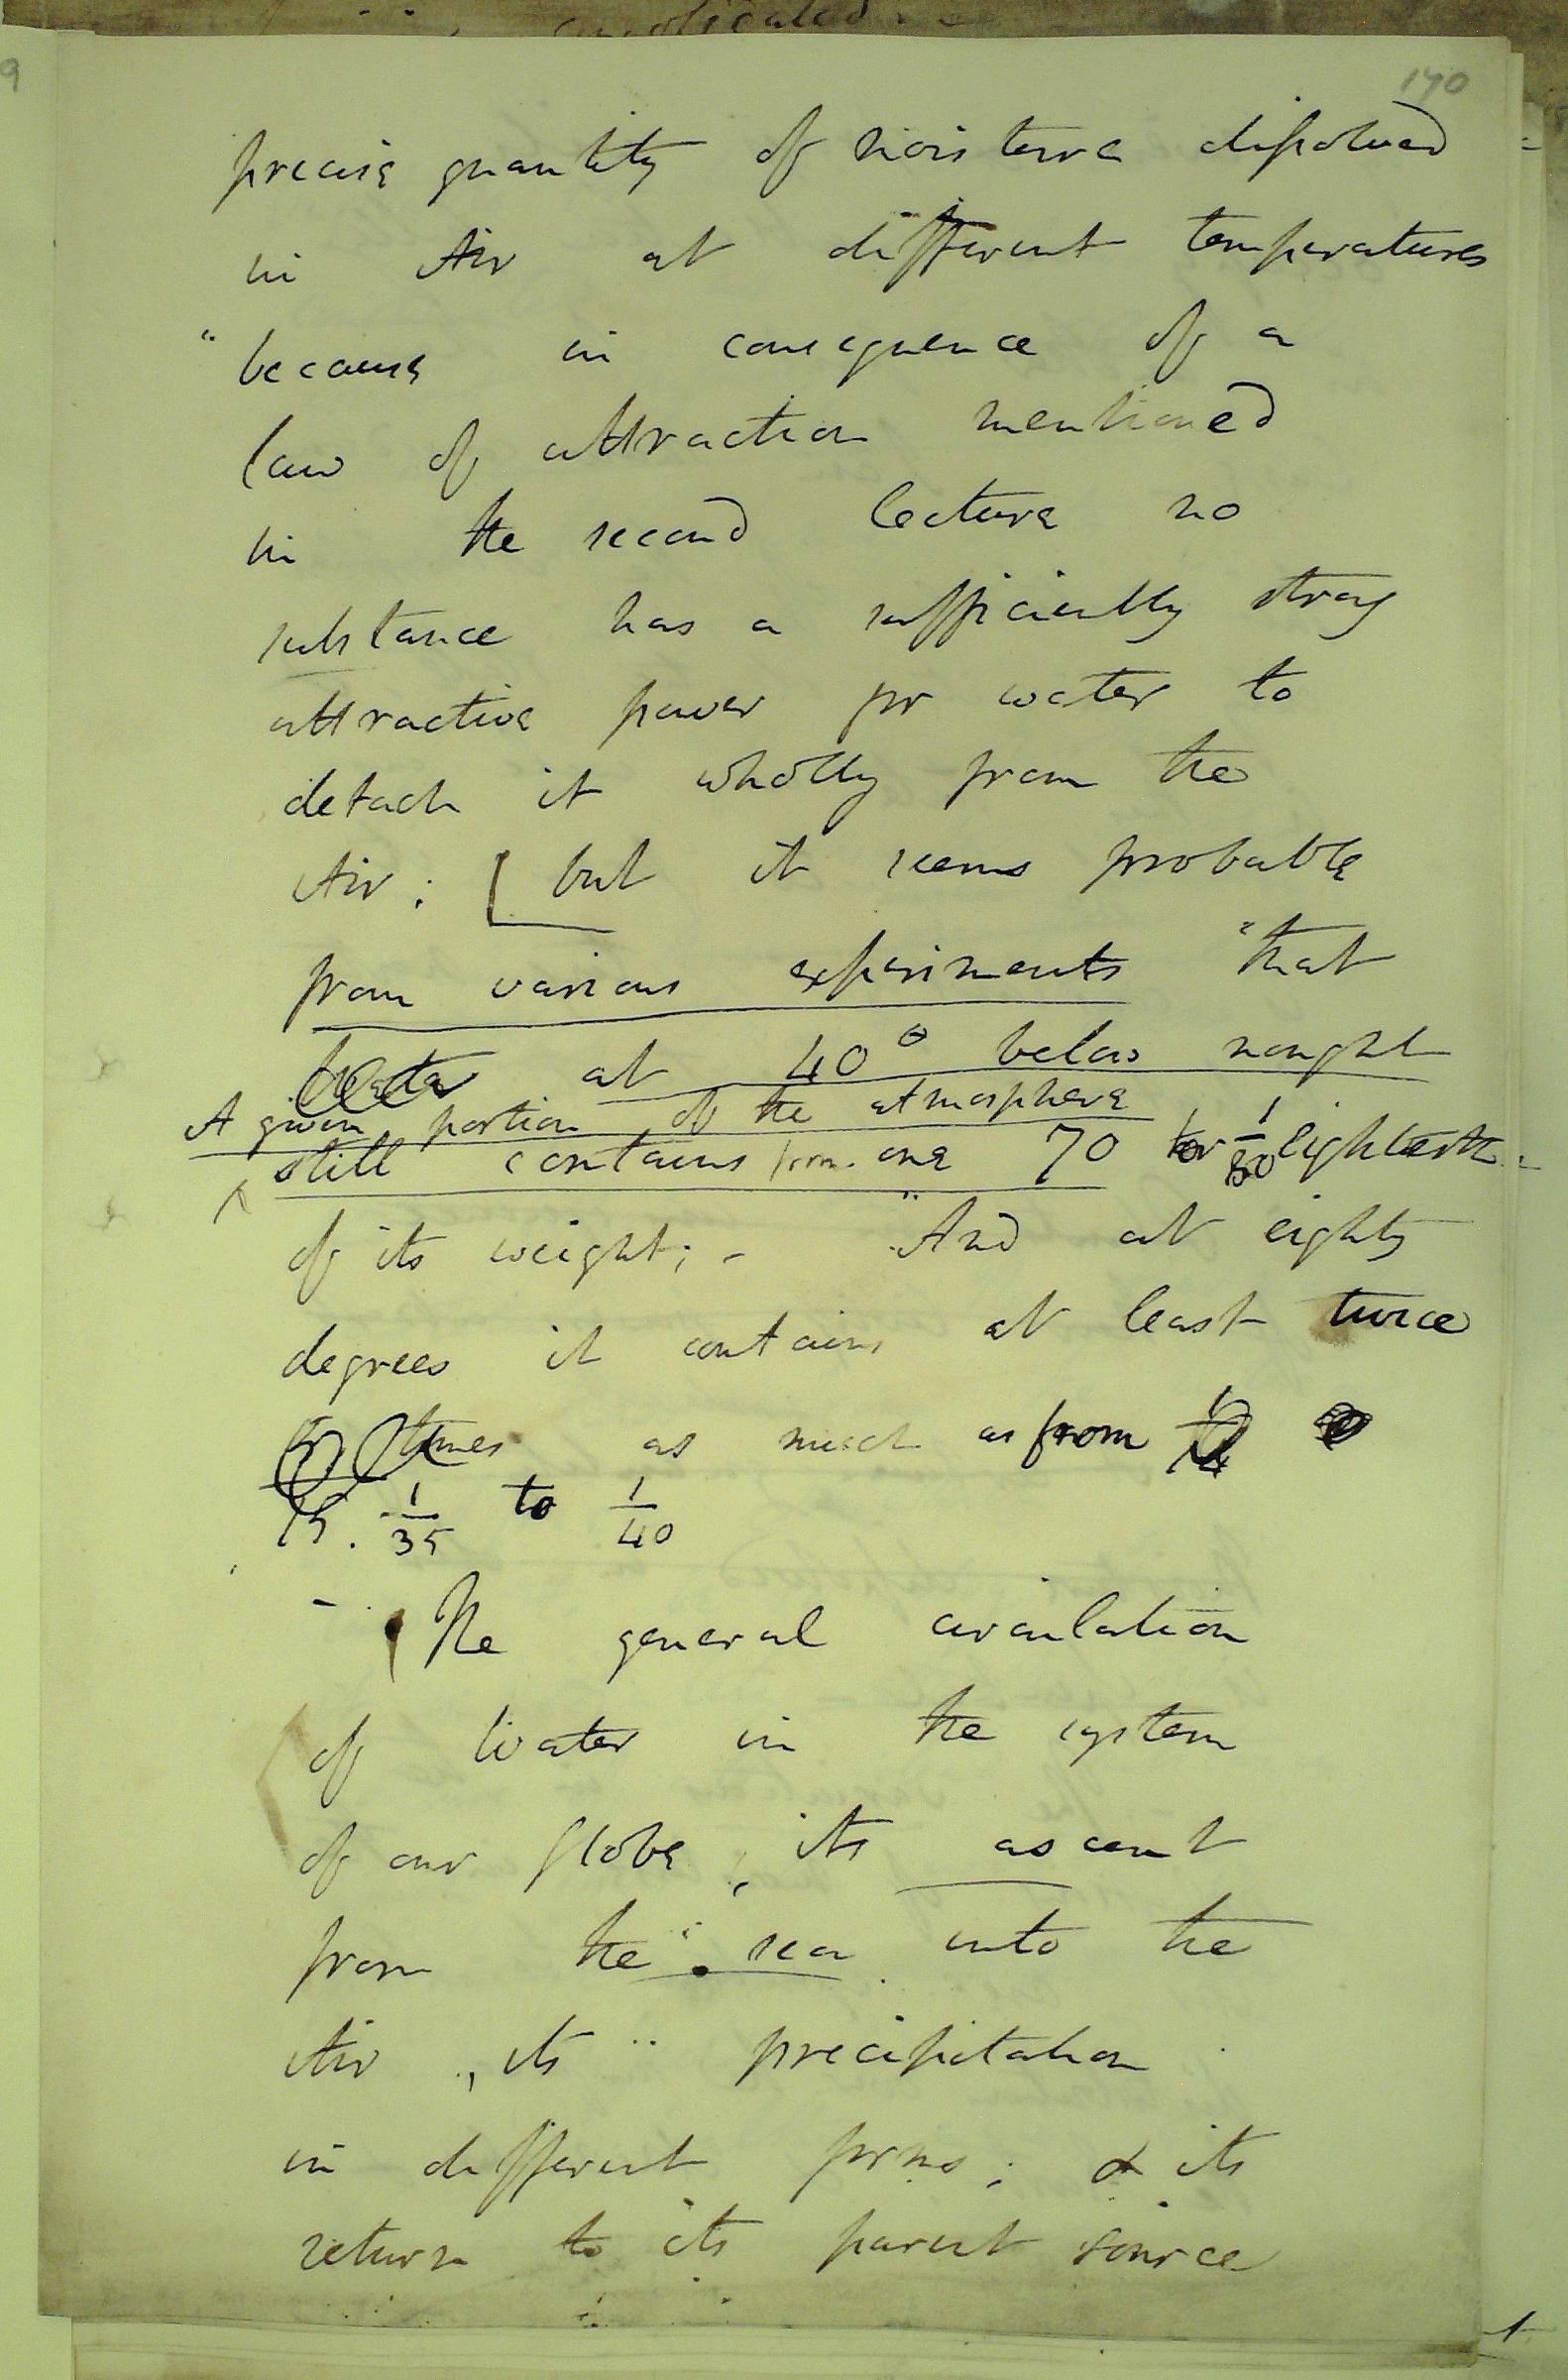 170
precise quantity of moisture dissolved
in Air at different temperatures
"because in consequence of a
law of attraction mentioned
in the second lecture no
substance has a sufficiently strong
attractive power for water to
detach it wholly from the
Air; [but it seems probable
from various experiments "that
at 40° below nought
A given portion of the atmosphere
still contains from one 70 to 1/80
of its weight; - And at eighty
degrees it contains at least twice
times as much as from
15. 1/35 to 1/40
- The general circulation
of Water in the system
of our Globe, its ascent
from the sea into the
Air, its precipitation
in different forms; & its
return to its parent source